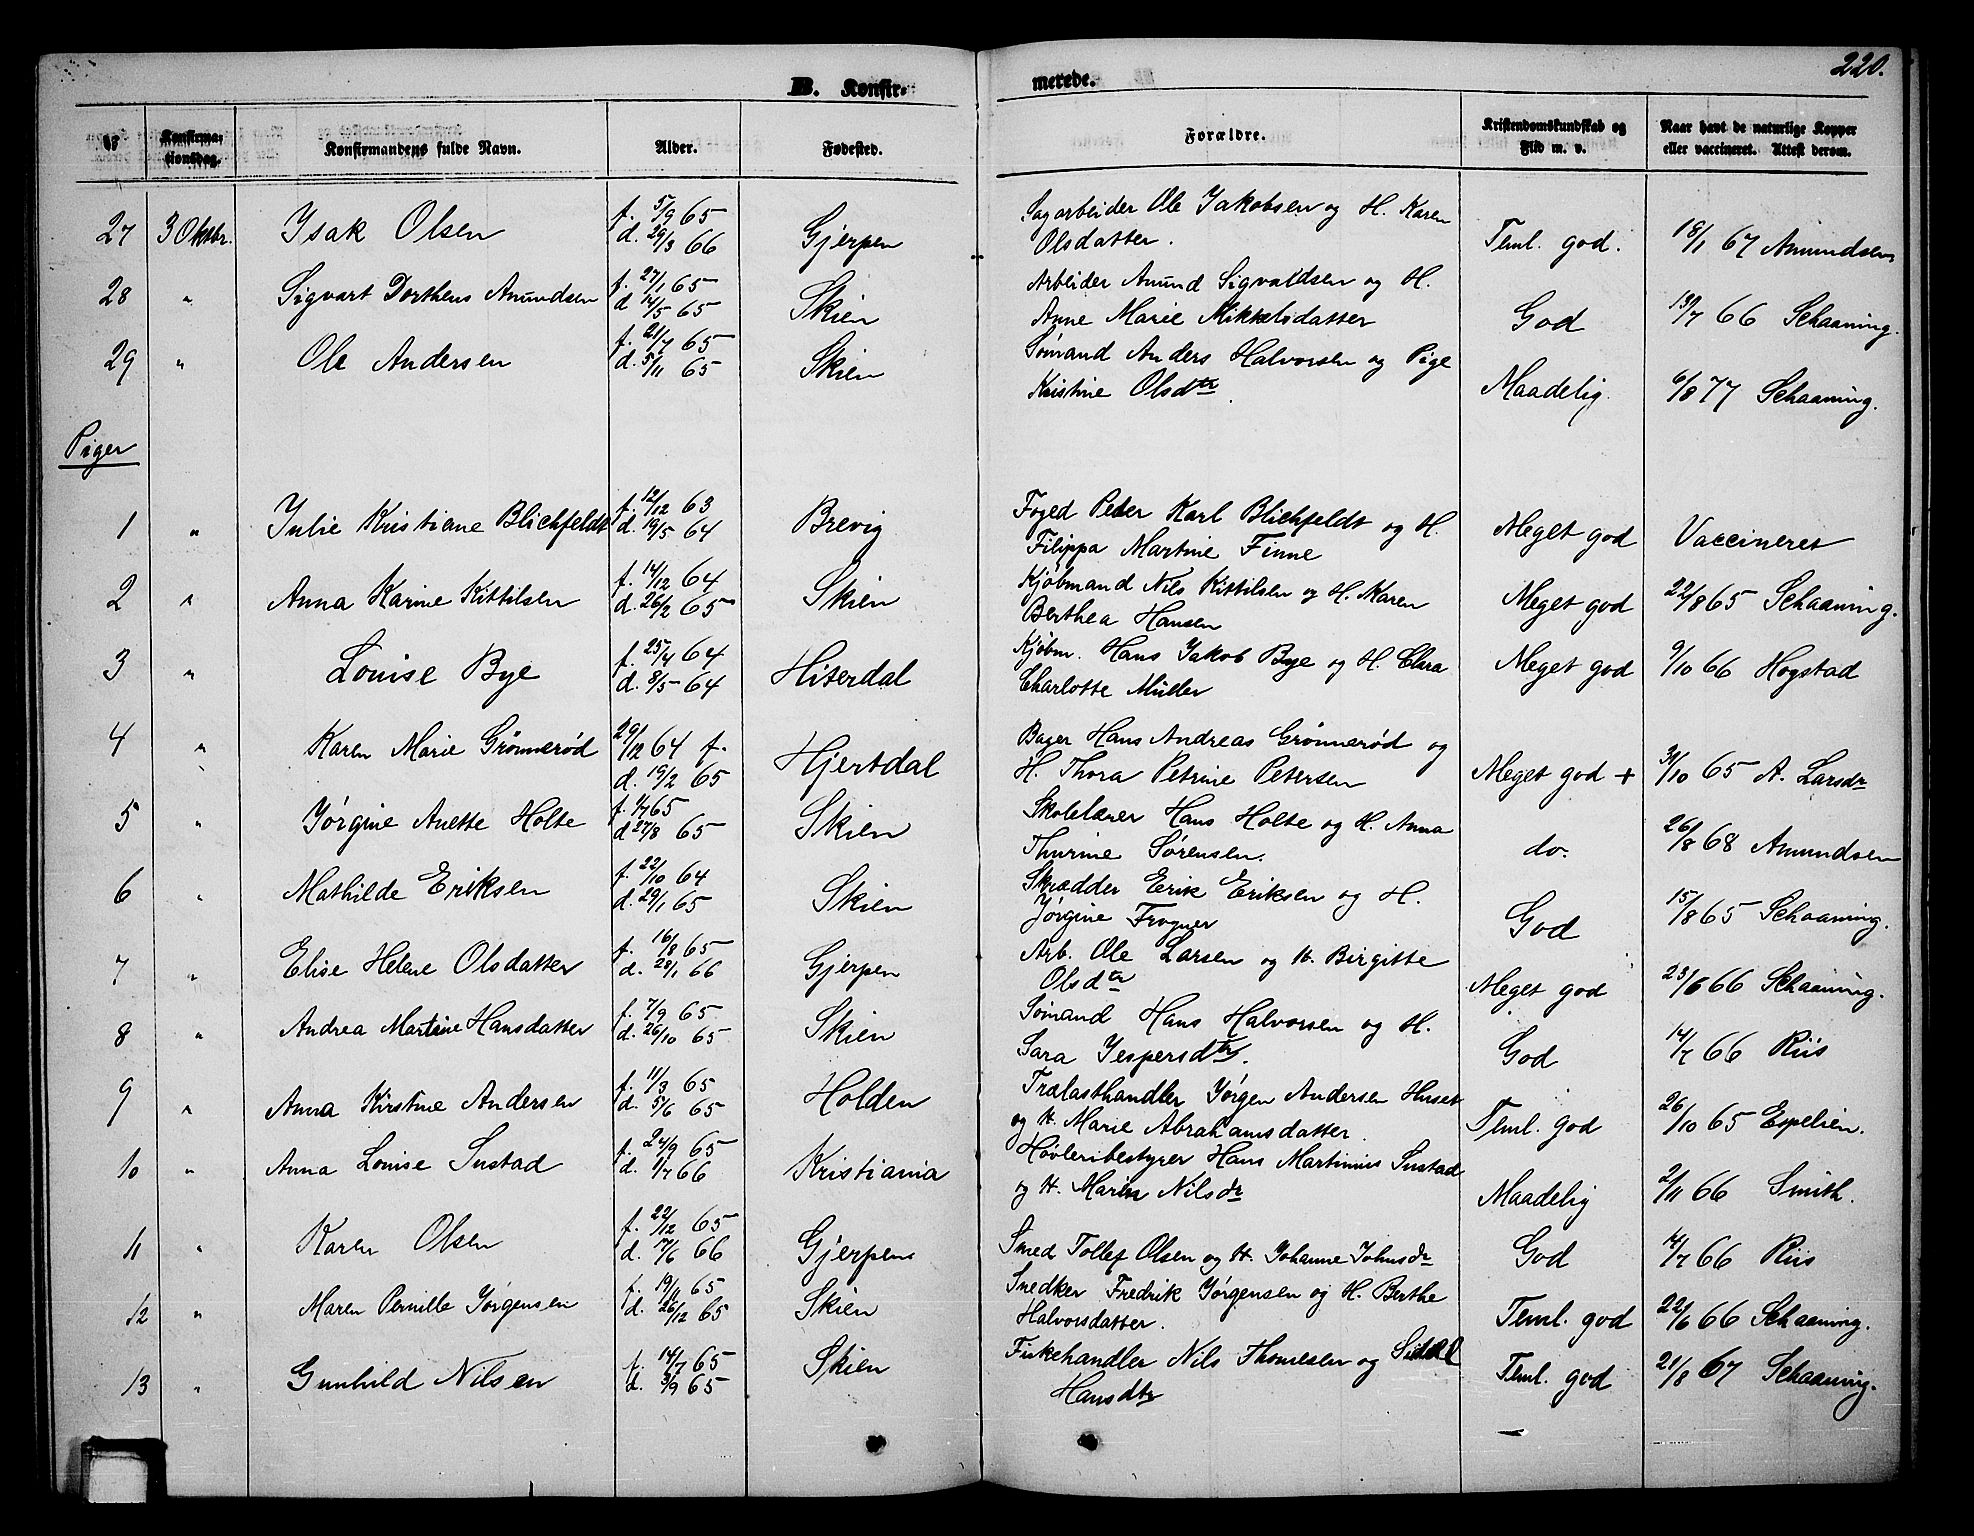 220.
B. Konfir-
merede.
Konfirma-
tionsdag.
Konfirmandens fulde Navn.
Alder.
Fødested.
Forældre.
Kristendomskundskab og
Flid m. v.
Naar havt de naturlige Kopper
eller vaccineret. Attest derom.
27 3 Oktbr. Isak Olsen f. 5/9 65 d. 29/3 66 Gjerpen Sagarbeider Ole Jakobsen og H. Karen Olsdatter. Teml. god. 18/1 67 Amundsen
28 " Sigvart Dortheus Amundsen f. 27/1 65 d 14/5 65 Skien Arbeider Amund Sigvaldsen og H. Anne Marie Mikkelsdatter God 13/7 66 Schaaning.
29 " Ole Andersen f. 21/7 65 d. 5/11 65 Skien Sømand Anders Halvorsen og Pige Kristine Olsdtr Maadelig. 6/8 77 Schaaning.
Piger
1 " Julie Kristiane Blichfeldt f. 12/12 63 d. 19/5 64 Brevig Foged Peter Karl Blichfeldt og H. Filippa Martine Finne Meget god Vaccineret
2 " Anna Karine Kittilsen f. 14/12 64 d. 26/2 65 Skien Kjøbmand Nils Kittilsen og H. Karen Berthea Hansen Meget god 22/8 65 Schaaning.
3 " Louise Bye f. 25/4 64 d. 8/5 64 Hiterdal Kjøbm. Hans Jakob Bye og H. Clara Charlotte Müller Meget god 9/10 66 Hogstad
4 " Karen Marie Grønnerød 29/12 64 f. d. 19/2 65 Hjertdal Bager Hans Andreas Grønnerød og H. Thora Petrine Petersen Meget god + 30/10 65 A. Larsdr
5 " Jørgine Anette Holte f. 1/7 65 d 27/8 65 Skien Skolelærer Hans Holte og H. Anna Thurine Sørensen. do. 26/8 68 Amundsen
6 " Mathilde Eriksen f. 22/10 64 d. 29/1 65 Skien Skrædder Erik Eriksen og H. Jørgine Frogner God 15/8 65 Schaaning.
7 " Elise Helene Olsdatter f. 16/8 65 d. 28/1 66 Gjerpen Arb. Ole Larsen og H. Birgitte Olsdtr Meget god 23/6 66 Schaaning.
8 " Andrea Martine Hansdatter f. 7/9 65 d. 26/10 65 Skien Sømand Hans Halvorsen og H. Sara Jespersdtr. God 14/7 66 Riis
9 " Anna Kirstine Andersen f. 11/3 65 d. 5/6 65 Holden Trælasthandler Jørgen Andersen Huset og H. Marie Abrahamsdatter. Teml. god 26/10 65 Espelien.
10 " Anna Louise Sustad f. 24/9 65 d. 1/7 66 Kristiania Høvleribestyrer Hans Martinius Sustad og H. Maren Nilsdr Maadelig 2/11 66 Smith.
11 " Karen Olsen f. 22/12 65 d. 7/6 66 Gjerpen Smed Tollef Olsen og H. Johanne Johnsdr God 14/7 66 Riis
12 " Maren Pernille Jørgensen f. 19/11 65 d. 26/12 65 Skien Snedker Fredrik Jørgensen og H. Berthe Halvorsdatter. Teml. god 22/6 66 Schaaning.
13 " Gunhild Nilsen f. 14/7 65 d. 3/9 65 Skien Fiskehandler Nils Thomesen og Sidsel Hansdtr Teml. god 21/8 67 Schaaning.